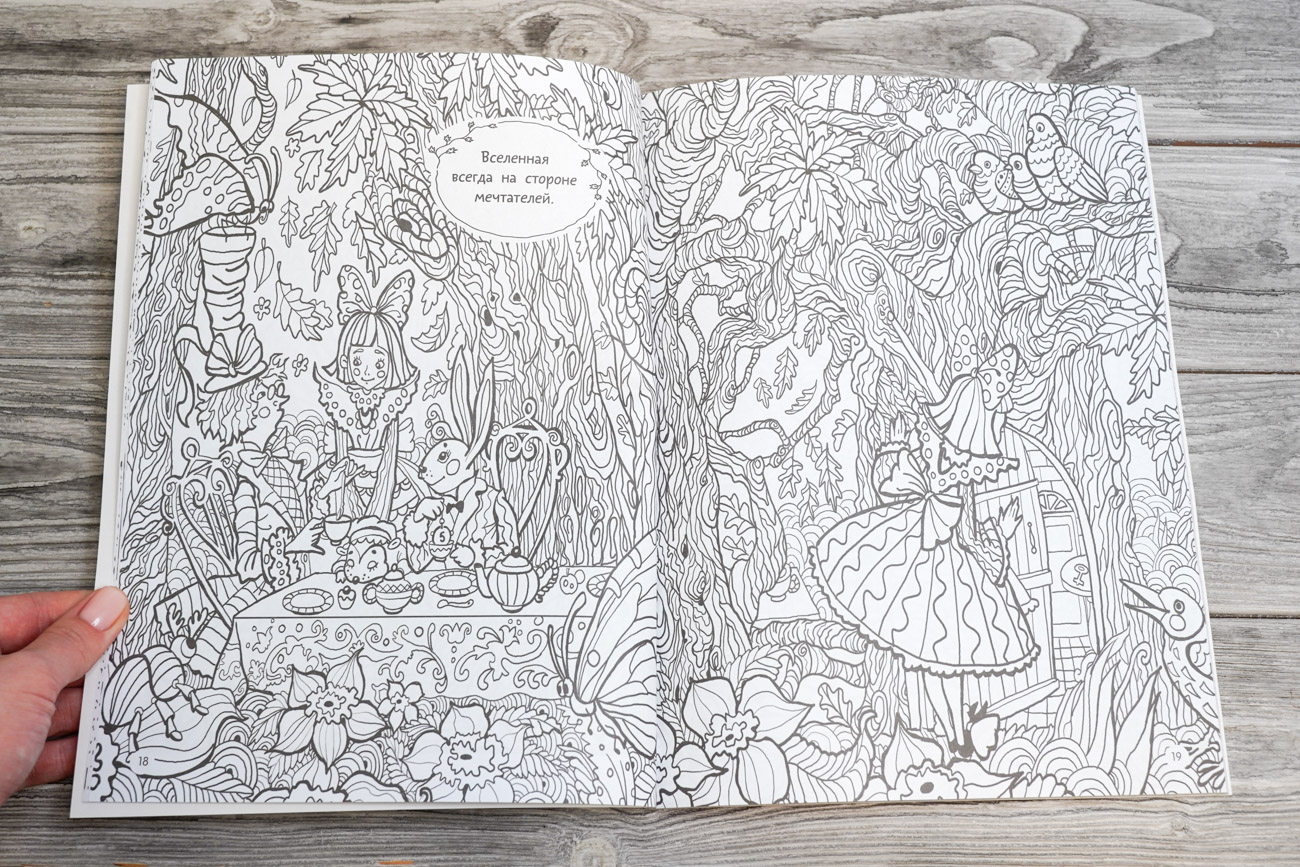 Вселенная
всегда на стороне
мечтателей.
5
18
19